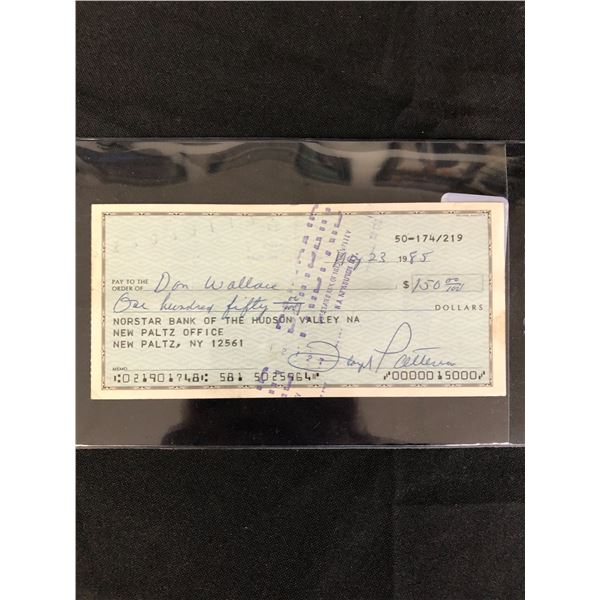 50-174/219
23 1985
PAY TO THE
ORDER OF Don Wallace $ 150 00/100
One hundred fifty DOLLARS
NORSTAR BANK OF THE HUDSON VALLEY NA
NEW PALTZ OFFICE
NEW PALTZ, NY 12561
Floyd Patterson
MEMO
⑆021901748⑆ 581 5025964⑈ ⑈0000015000⑈